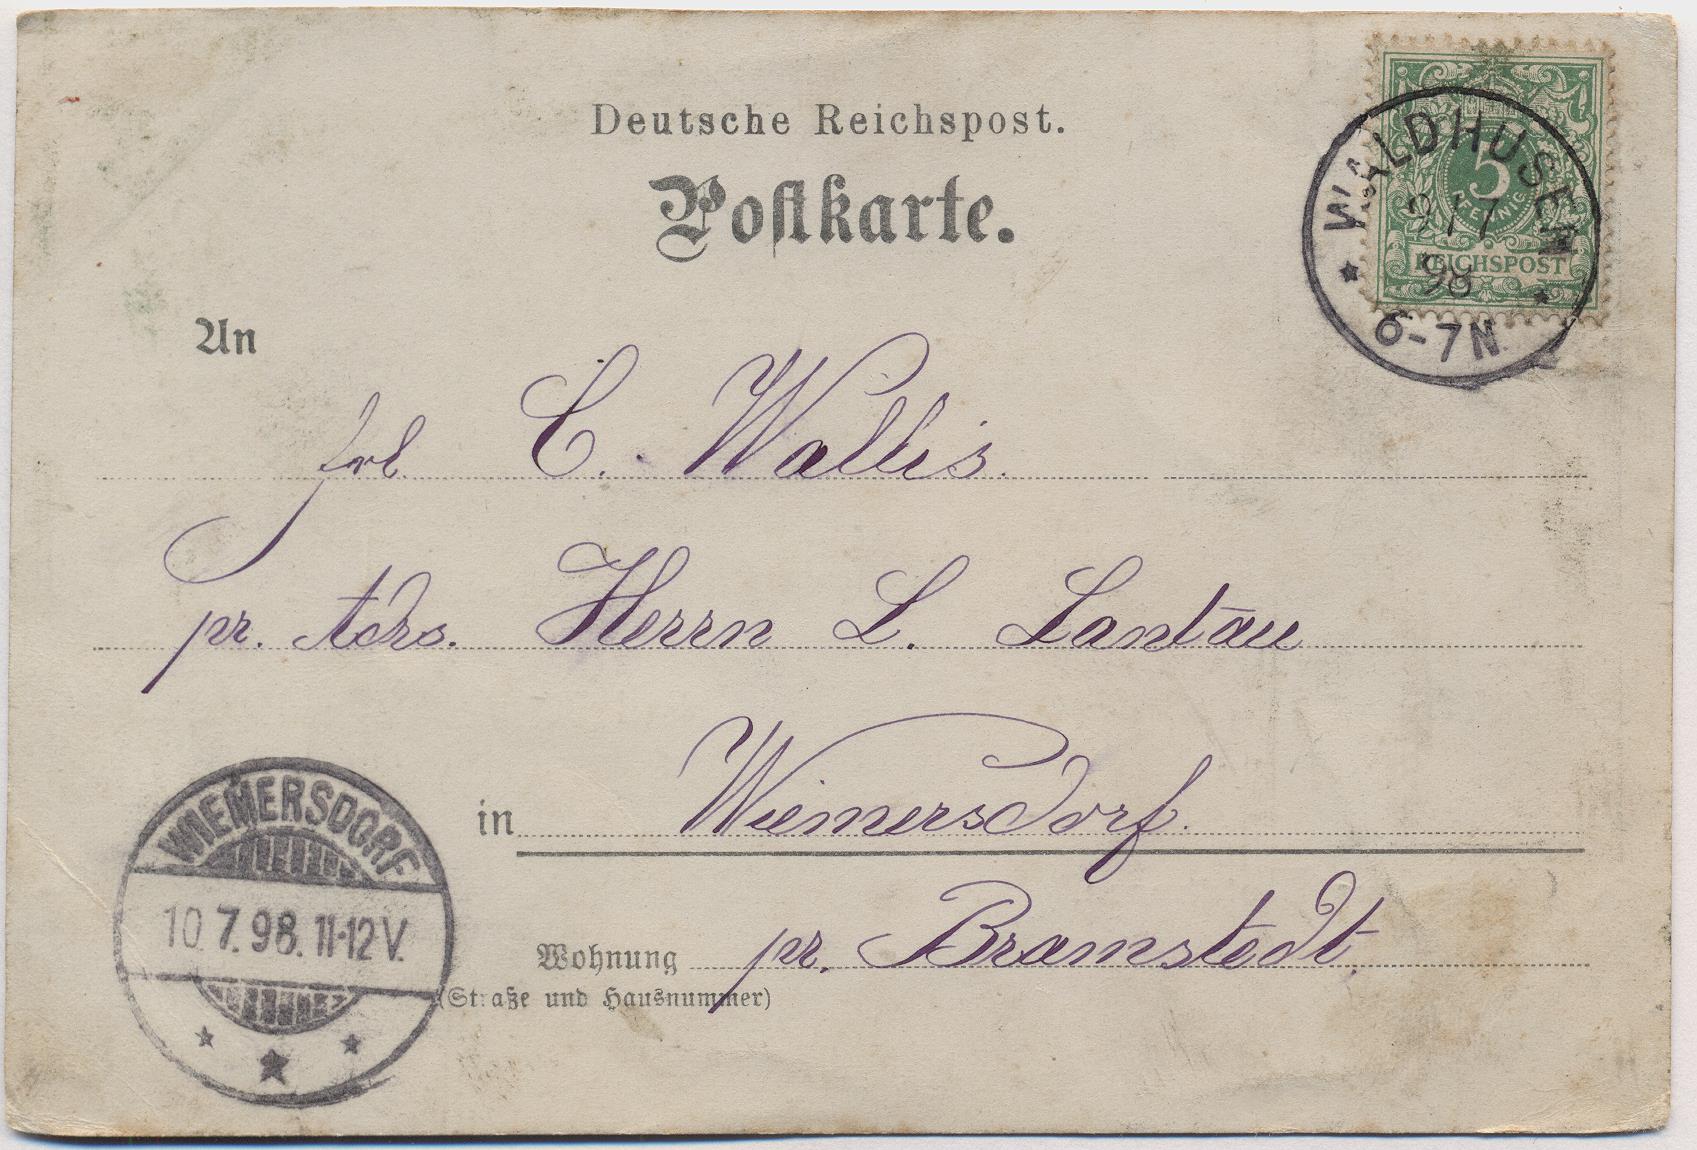 Deutsche Reichspost.
Postkarte.
5
PFENNIG
REICHSPOST
WALDHUSEN
9 / 7
98
6-7N.
An
Frl. C. Wallis.
pr. Adrs. Herrn L. Lantau
in Wiemersdorf.
Wohnung pr. Bramstedt.
(Straße und Hausnummer)
WIEMERSDORF
10.7.98.11-12V.